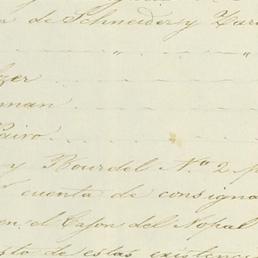 de Schneider y Zar
" "
zer
nman
Pairo
y Bourdel N.o 2 p
cuenta de consigna
en el Cajon del Nopal
sto de estas existenci